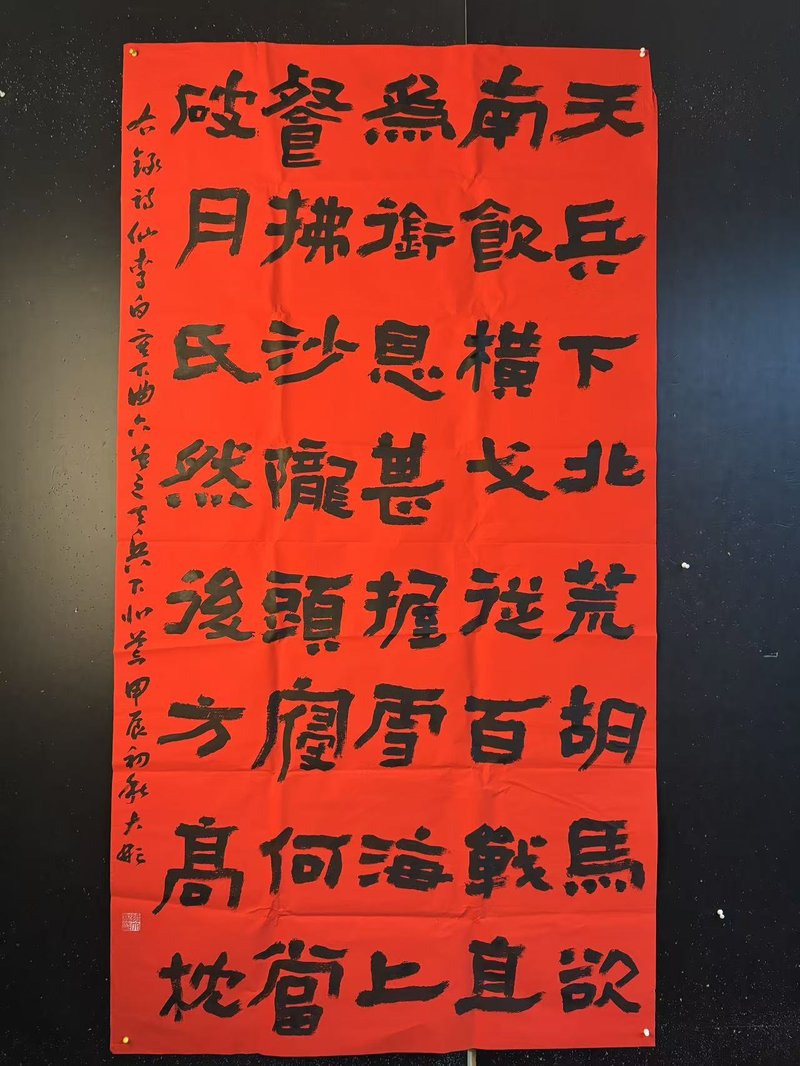 天兵下北荒胡馬欲
南飲橫戈從百戰直
為銜恩甚握雪海上
餐拂沙隴頭寢何當
破月氏然後方高枕
右錄詩仙李白塞下曲六首之天兵下北荒甲辰初秋大彬